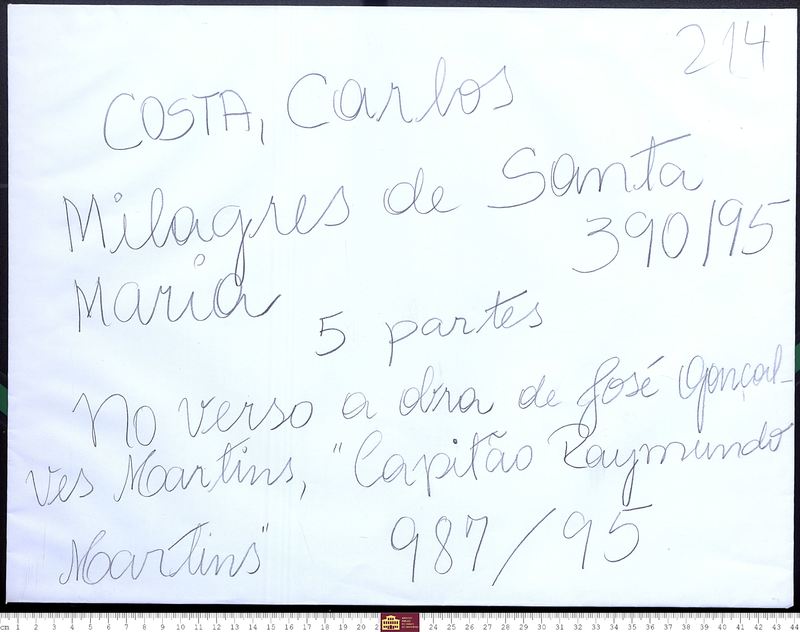 214
COSTA, Carlos
Milagres de Santa
390/95
Maria
5 partes
No verso a obra de José Gonçal-
ves Martins, "Capitão Raymundo
Martins" 987/95
cm 1 2 3 4 5 6 7 8 9 10 11 12 13 14 15 16 17 18 19 20 2 24 25 26 27 28 29 30 31 32 33 34 35 36 37 38 39 40 41 42 43 44